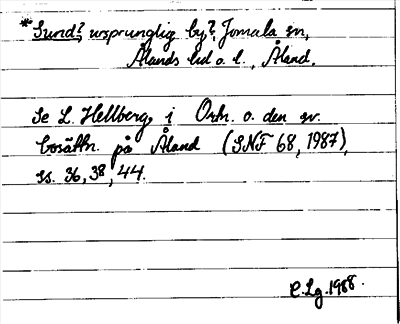 *Sund?, ursprunglig by?, Jomala sn,
Ålands hd o. l., Åland.
Se L. Hellberg, i Ortn. o. den sv.
bosättn. på Åland (SNF 68, 1987),
ss. 36, 38, 44.
C.Lg. 1988.